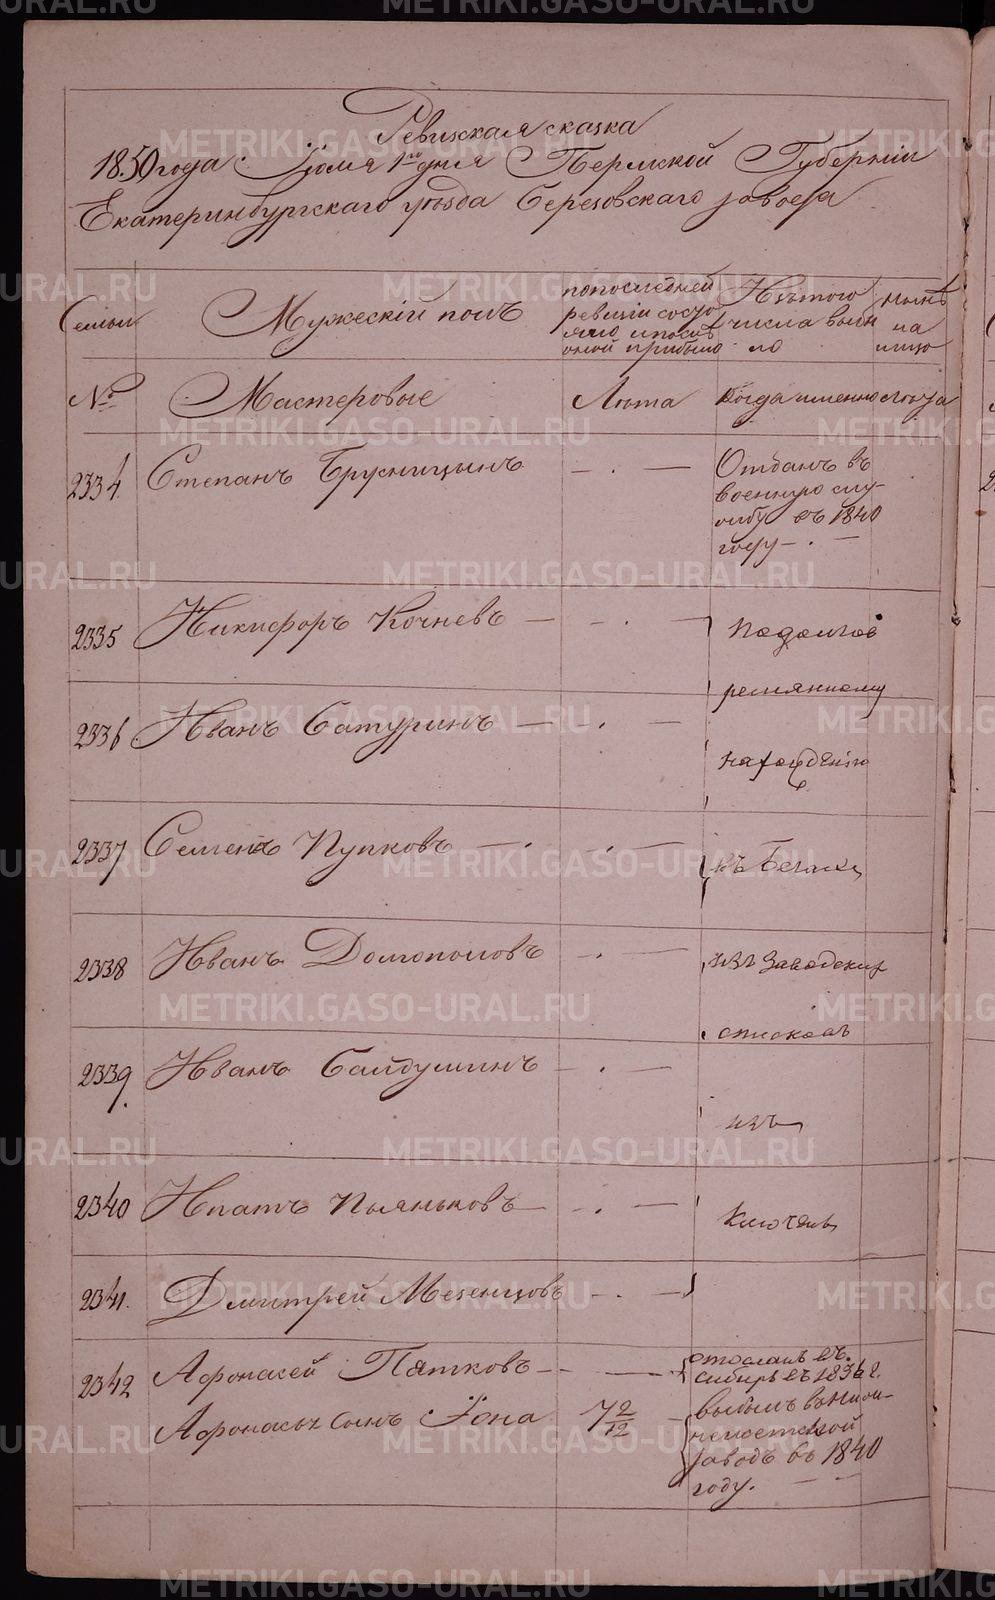 METRIKI.GASO-URAL.RU
Ревизская сказка
1850 года Iюля 1го дня Пермской Губернiи
Екатеринбургскаго уѣзда Березовскаго завода
Семьи
Мужескiй полъ
по последней ревизiи состояло и после оной прибыло
Изъ того числа выбыло
нынѣ на лицо
№
Мастеровые
Лѣта
Когда именно
лѣта
2334
Степанъ Брусницынъ — . —
Отданъ въ
военную слу-
жбу въ 1840
году — . —
2335
Никифоръ Кочневъ — - . —
По долго
временному
2336
Иванъ Сатуринъ — - . —
нахожденiю
2337
Семенъ Пупковъ — . . —
въ бегахъ
2338
Иванъ Долгополовъ - . —
изъ заводских
списковъ
2339
Иванъ Байдушинъ — . —
изъ
2340
Ипатъ Пьяньковъ — - . —
ключенъ
2341.
Дмитрей Мезенцовъ - . —
2342
Афонасей Пятковъ — - —
отосланъ въ
Сибирь въ 1836 г.
Афонасьи сынъ Iона
7 2/12
выбылъ въ
заводъ въ 1840
году. — —